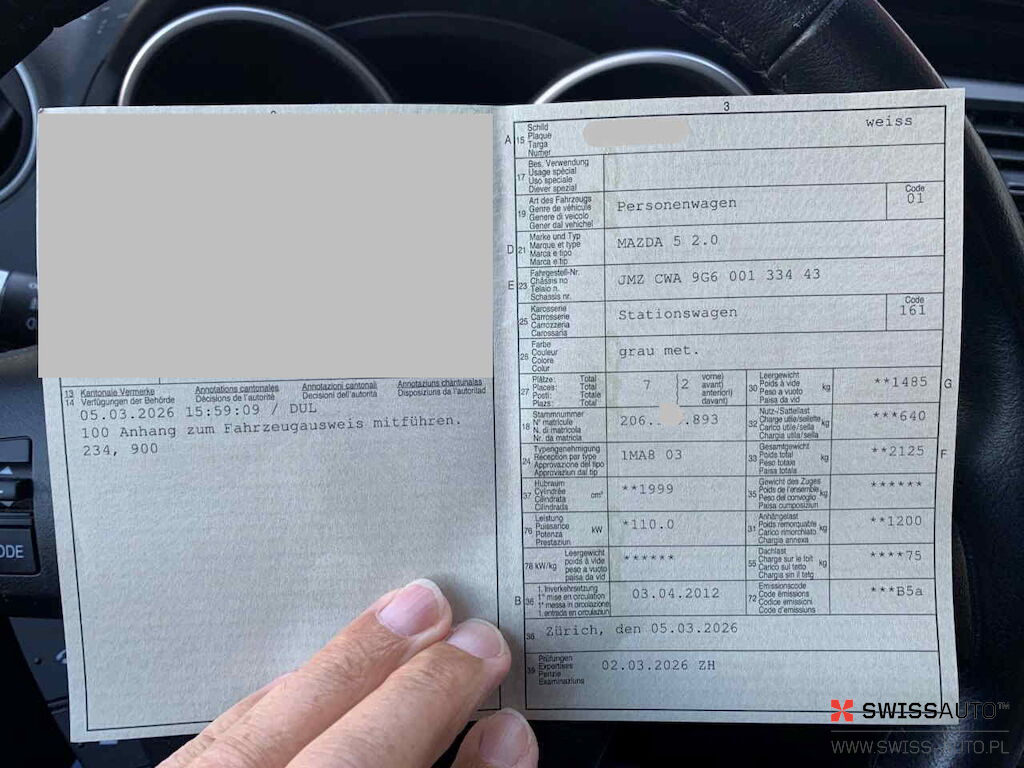 13 Kantonale Vermerke Annotations cantonales Annotazioni cantonali Annotaziuns chantunalas
14 Verfügungen der Behörde Décisions de l'autorité Decisioni dell'autorità Disposiziuns da l'autoritad
05.03.2026 15:59:09 / DUL
100 Anhang zum Fahrzeugausweis mitführen.
234, 900
3
A 15 Schild
Plaque
Targa
Numer
weiss
17 Bes. Verwendung
Usage spécial
Uso speciale
Diever spezial
19 Art des Fahrzeugs
Genre de véhicule
Genere di veicolo
Gener dal vehichel
Personenwagen
Code
01
D 21 Marke und Typ
Marque et type
Marca e tipo
Marca e tip
MAZDA 5 2.0
E 23 Fahrgestell-Nr.
Châssis no
Telaio n.
Schassis nr.
JMZ CWA 9G6 001 334 43
25 Karosserie
Carrosserie
Carrozzeria
Carossaria
Stationswagen
Code
161
26 Farbe
Couleur
Colore
Colur
grau met.
27 Plätze: Total
Places: Total
Posti: Totale
Plazs: Total
7
2
vorne)
avant)
anteriori)
davant)
30 Leergewicht
Poids à vide
Peso a vuoto
Paisa da vid
kg
**1485
G
18 Stammnummer
N° matricule
N. di matricola
Nr. da matricla
206. .893
32 Nutz-/Sattellast
Charge utile/sellette
Carico utile/sella
Chargia utila/sella
kg
***640
24 Typengenehmigung
Réception par type
Approvazione del tipo
Approvaziun dal tip
1MA8 03
33 Gesamtgewicht
Poids total
Peso totale
Paisa totala
kg
**2125
F
37 Hubraum
Cylindrée
Cilindrata
Cilindrada
cm³
**1999
35 Gewicht des Zuges
Poids de l'ensemble
Peso del convoglio
Paisa cumposiziun
kg
******
76 Leistung
Puissance
Potenza
Prestaziun
kW
*110.0
31 Anhängelast
Poids remorquable
Carico rimorchiato
Chargia annexa
kg
**1200
78 kW/kg
Leergewicht
poids à vide
peso a vuoto
paisa da vid
******
55 Dachlast
Charge sur le toit
Carico sul tetto
Chargia sin il tetg
kg
****75
B 36 1. Inverkehrsetzung
1re mise en circulation
1a messa in circolazione
1. entrada en circulaziun
03.04.2012
72 Emissionscode
Code émissions
Codice emissioni
Code d'emissiuns
***B5a
38 Zürich, den 05.03.2026
39 Prüfungen
Expertises
Perizie
Examinaziuns
02.03.2026 ZH
SWISSAUTO™
WWW.SWISS-AUTO.PL